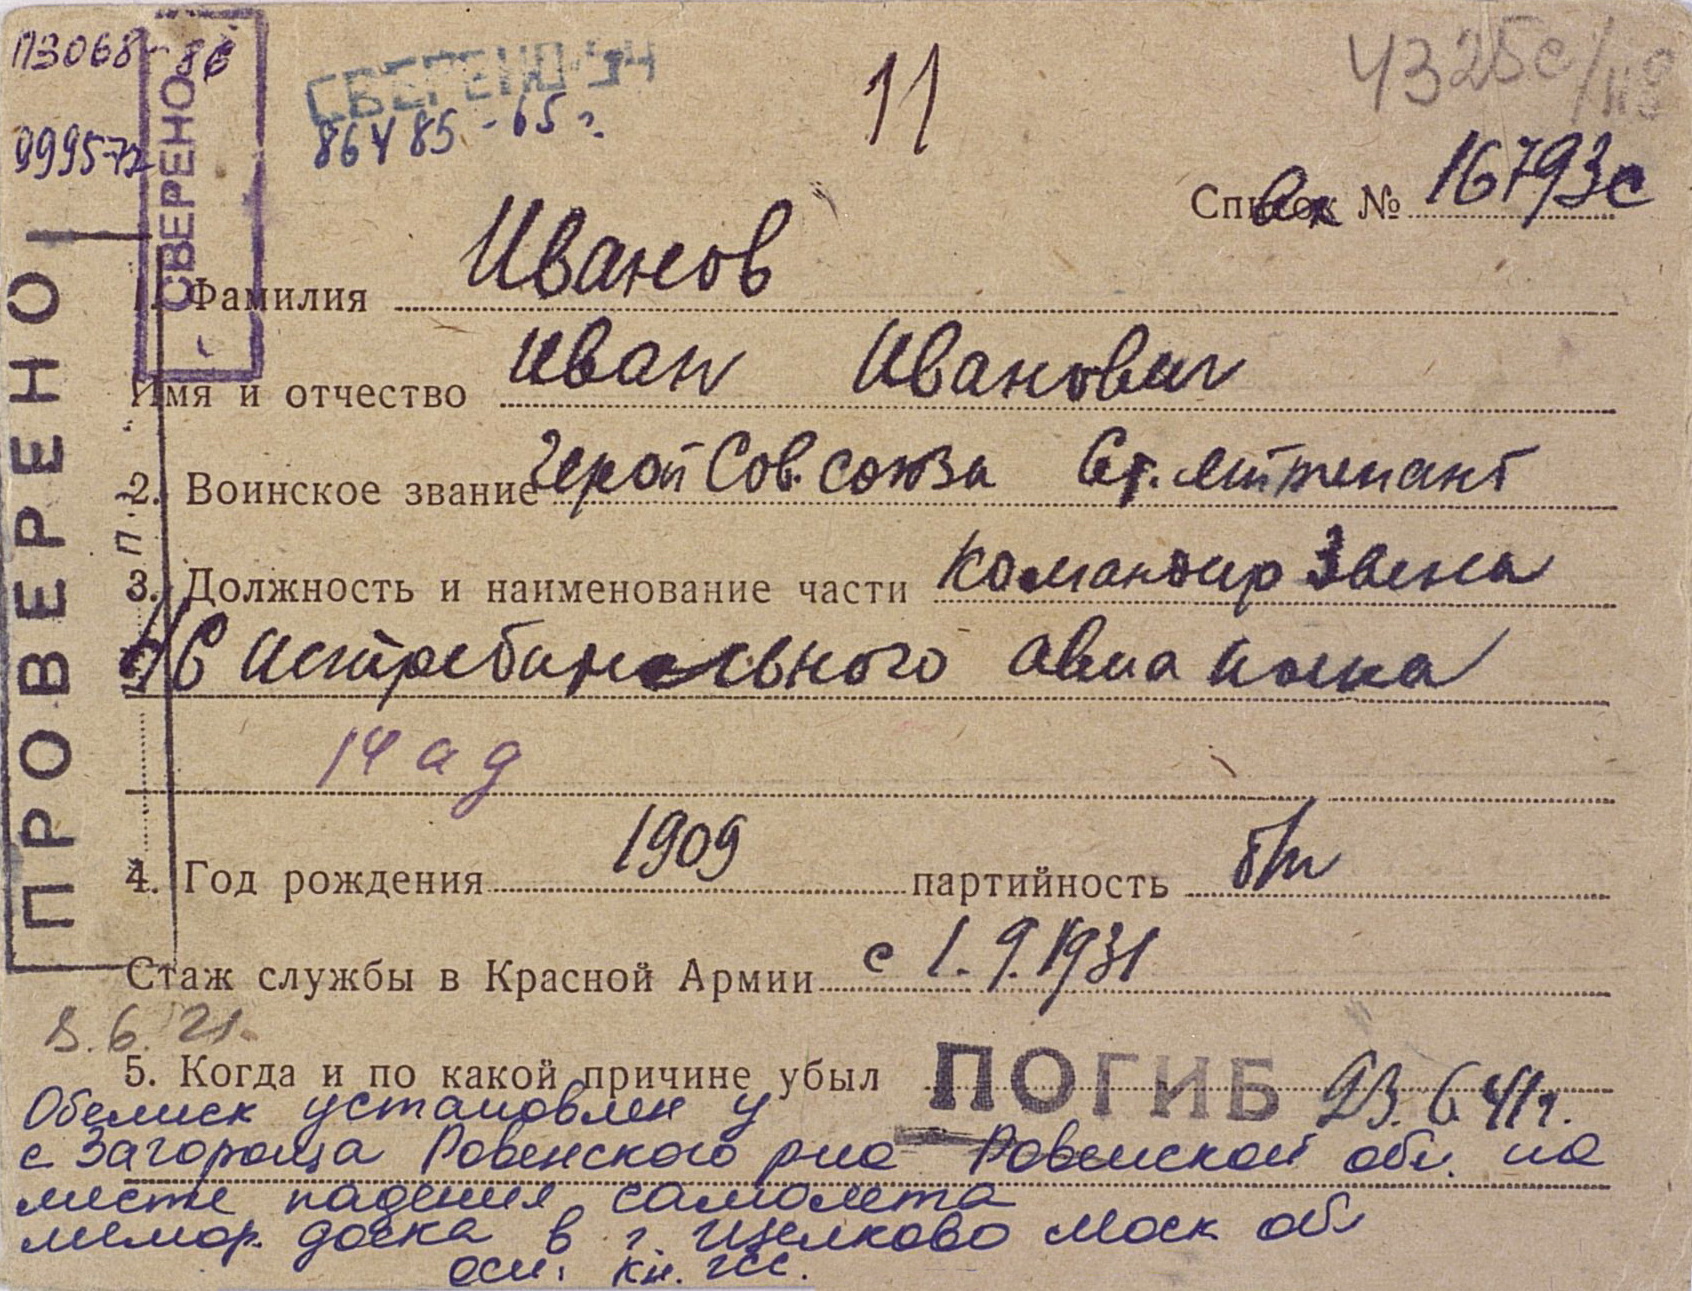 П3068-86
СВЕРЕНО
11
999572
86485-65г.
Список № 16793с
СВЕРЕНО
ПРОВЕРЕНО
1. Фамилия Иванов
Имя и отчество Иван Иванович
2. Воинское звание Герой Сов. союза Ст. лейтенант
3. Должность и наименование части командир Звена
46 Истребительного авиа полка
14 а д
4. Год рождения 1909 партийность б/п
Стаж службы в Красной Армии с 1.9.1931
6. 21.
5. Когда и по какой причине убыл ПОГИБ 23.6 41г.
Обелиск установлен у
с Загороща Ровенского рна Ровенской обл. на
месте падения самолета
мемор. доска в г. Щелково моск обл
осн: кн. гсс.